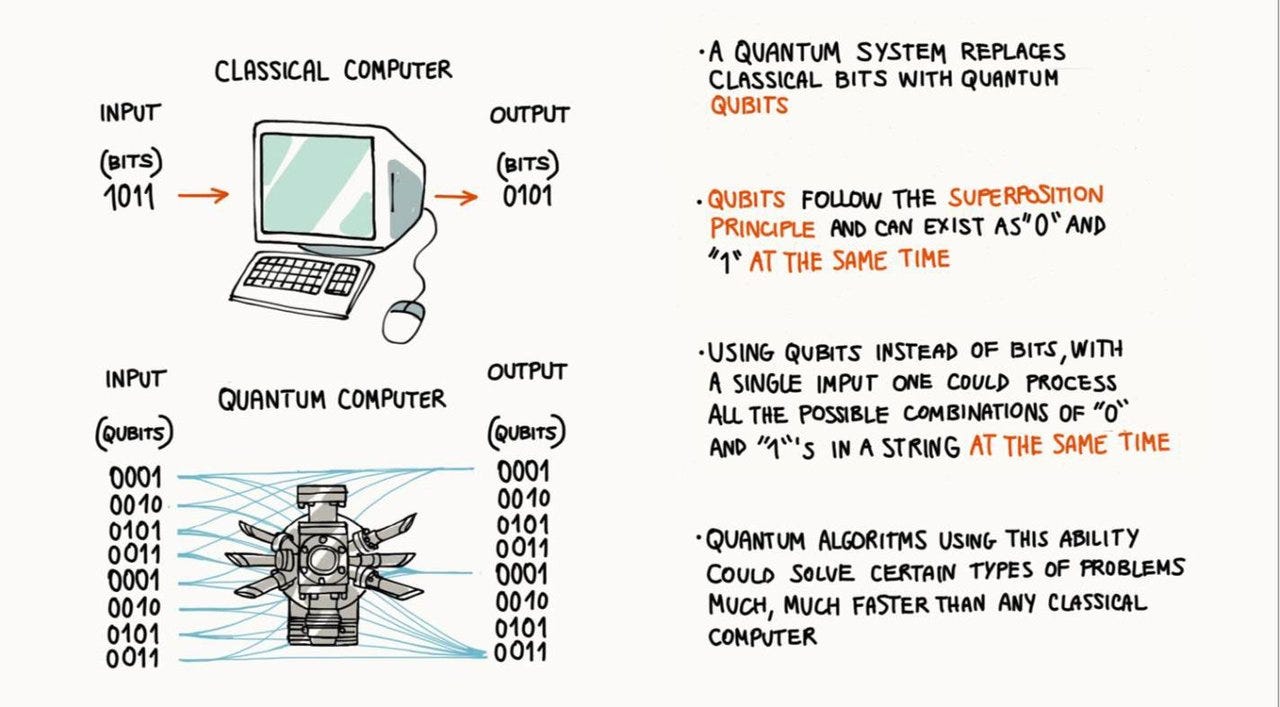 CLASSICAL COMPUTER
INPUT
(BITS)
1011
OUTPUT
(BITS)
0101
INPUT
(QUBITS)
0001
0010
0101
0011
0001
0010
0101
0011
QUANTUM COMPUTER
OUTPUT
(QUBITS)
0001
0010
0101
0011
0001
0010
0101
0011
·A QUANTUM SYSTEM REPLACES
CLASSICAL BITS WITH QUANTUM
QUBITS
·QUBITS FOLLOW THE SUPERPOSITION
PRINCIPLE AND CAN EXIST AS "0" AND
"1" AT THE SAME TIME
·USING QUBITS INSTEAD OF BITS, WITH
A SINGLE IMPUT ONE COULD PROCESS
ALL THE POSSIBLE COMBINATIONS OF "0"
AND "1"'S IN A STRING AT THE SAME TIME
·QUANTUM ALGORITMS USING THIS ABILITY
COULD SOLVE CERTAIN TYPES OF PROBLEMS
MUCH, MUCH FASTER THAN ANY CLASSICAL
COMPUTER